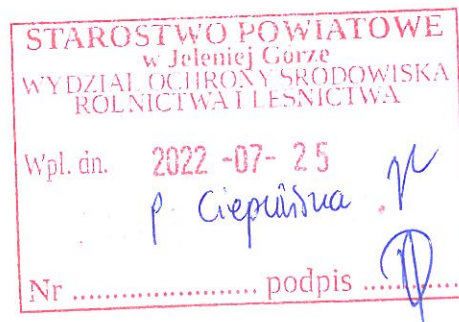 STAROSTWO POWIATOWE
w Jeleniej Górze
WYDZIAŁ OCHRONY ŚRODOWISKA
ROLNICTWA I LEŚNICTWA
Wpł. dn. 2022 -07- 25
p.
Nr .................... podpis ............